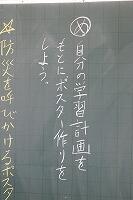 め 自分の学習計画を
もとにポスター作りを
しよう。
防災を呼びかけるポスタ